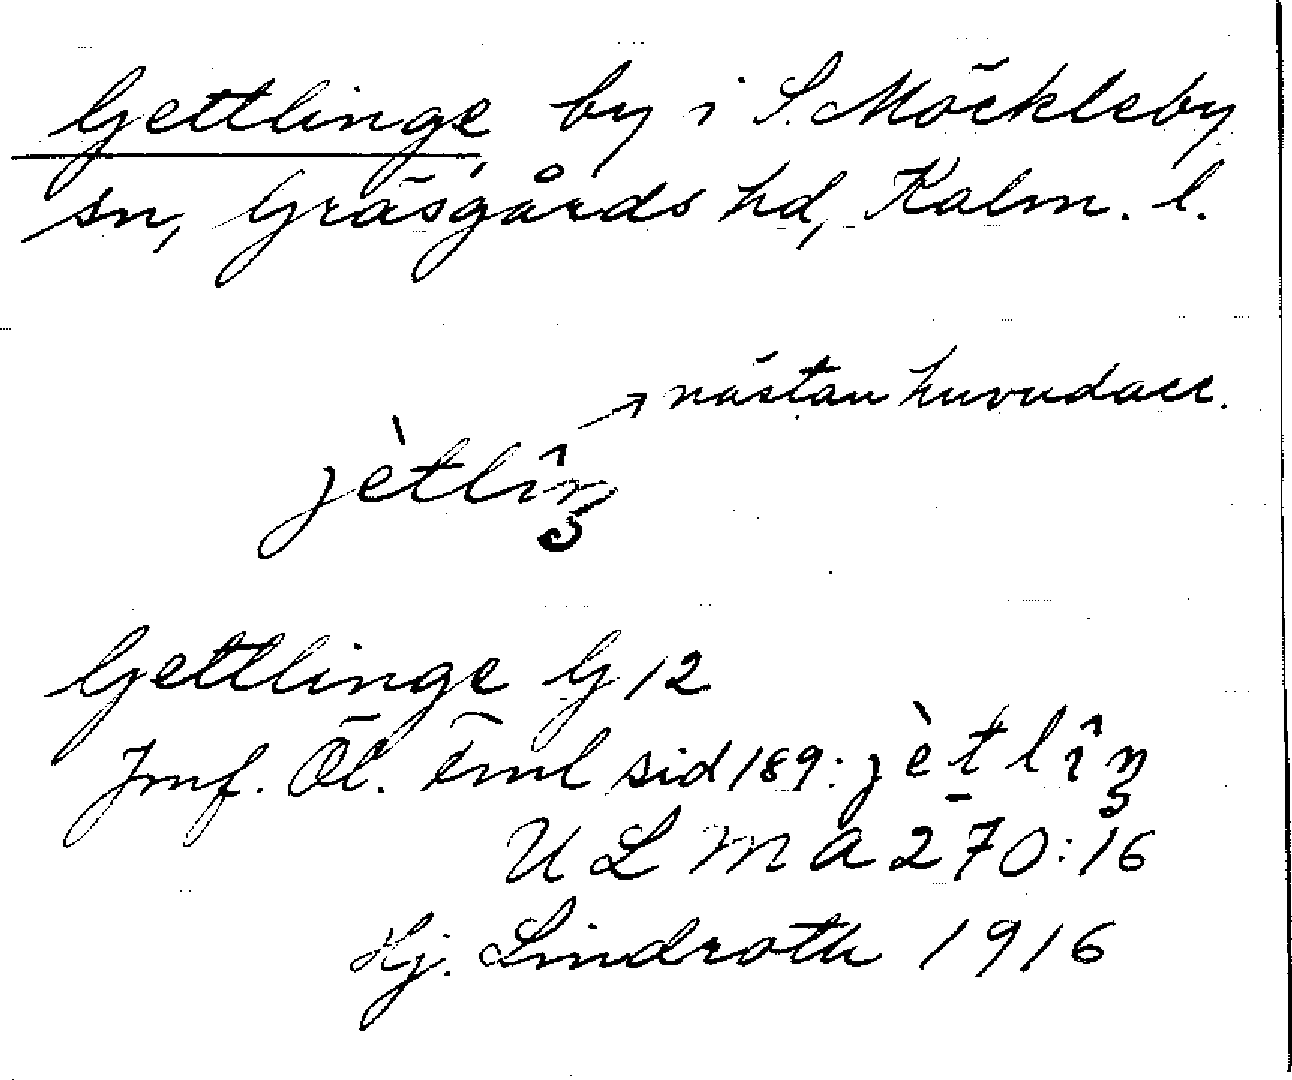 Gettlinge by i S. Möckleby
sn, Gräsgårds hd, Kalm. l.
nästan huvudacc.
jètlîŋ
Gettlinge G 12
Jmf. Öl. Eml sid 189: jètlîŋ
ULMA 270:16
Hj. Lindroth 1916